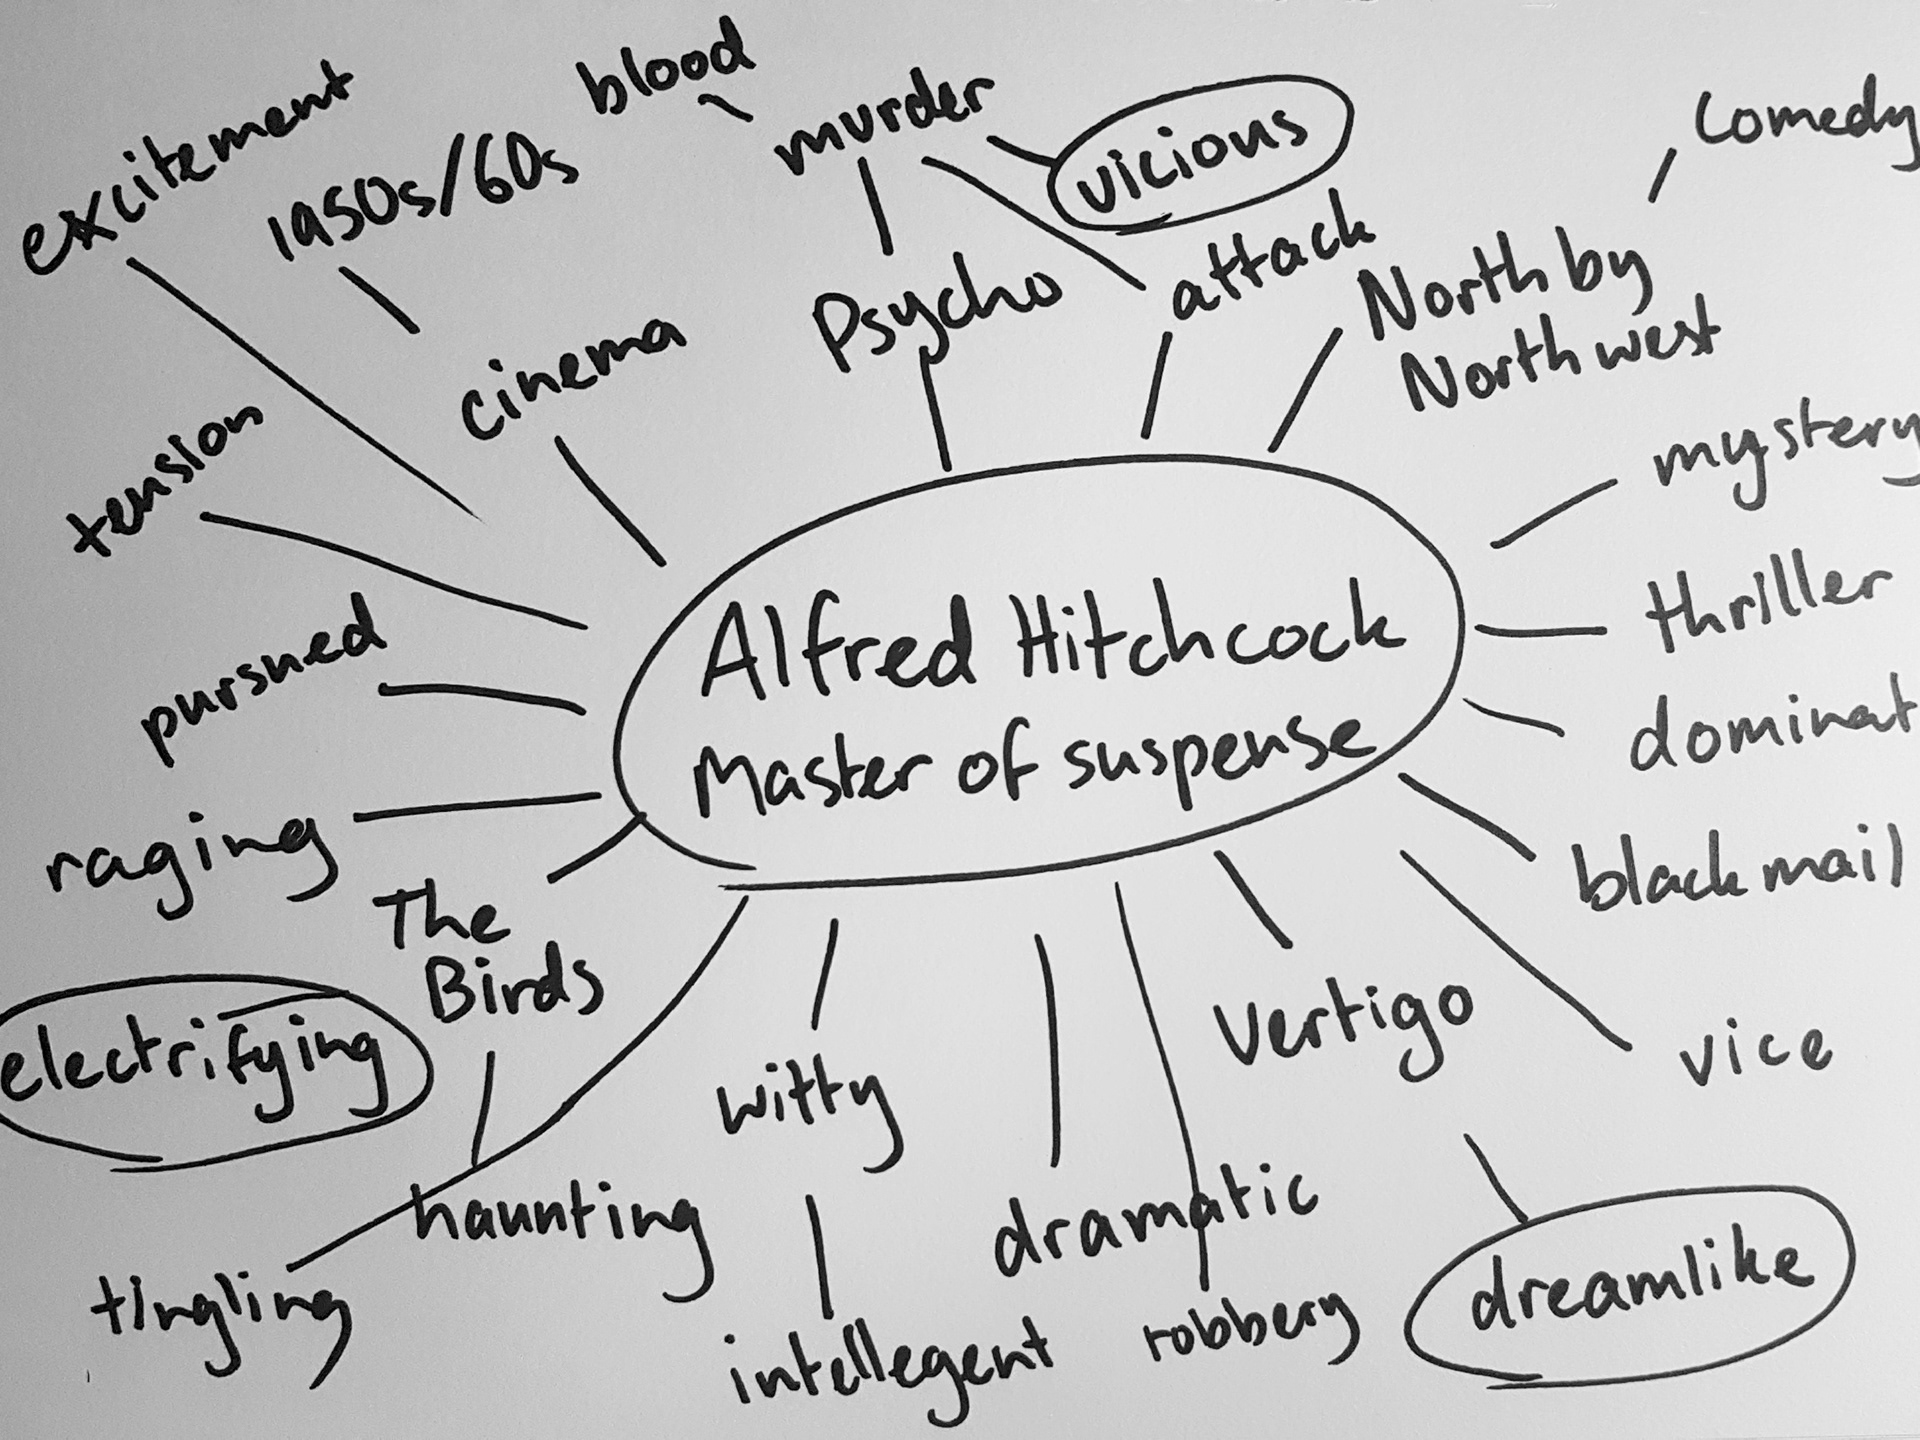 blood
murder
vicious
Comedy
excitement
1950s/60s
Psycho
attack
North by
Northwest
cinema
mystery
tension
thriller
pursued
Alfred Hitchcock
Master of suspense
dominat
blackmail
raging
The
Birds
electrifying
witty
Vertigo
vice
haunting
dramatic
dreamlike
tingling
intellegent
robbery